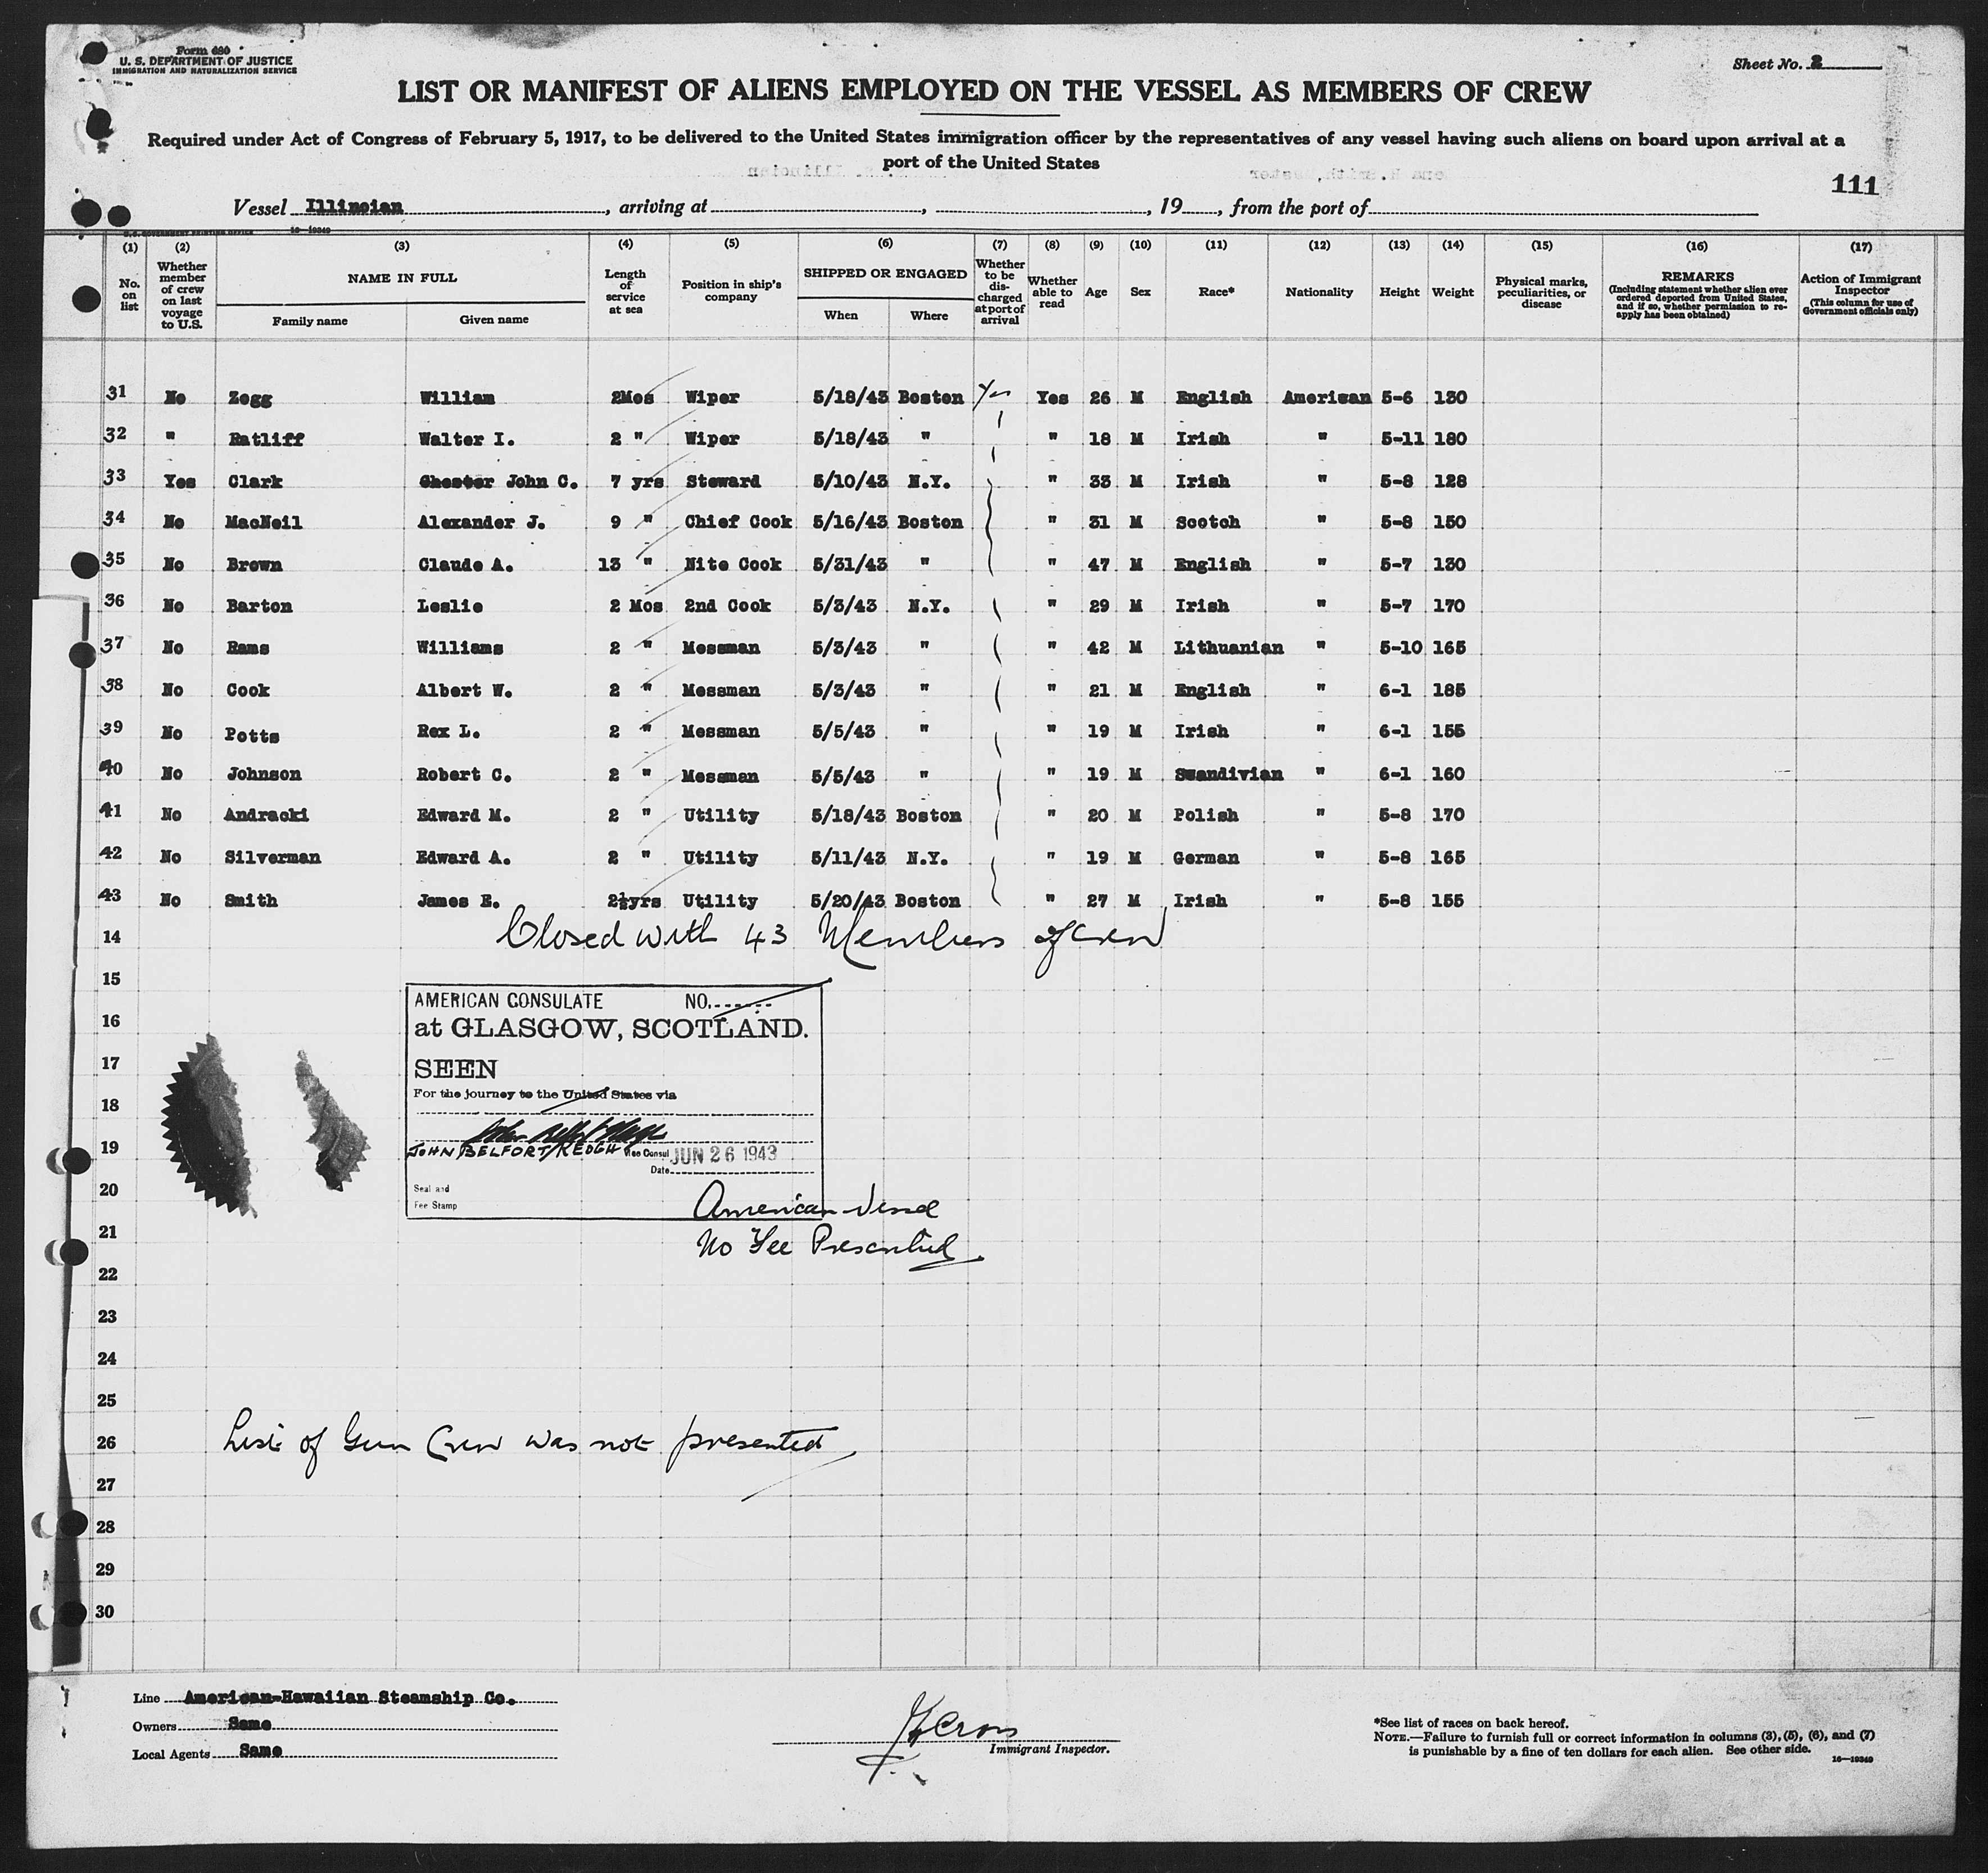 Form 680
U. S. DEPARTMENT OF JUSTICE
IMMIGRATION AND NATURALIZATION SERVICE
Sheet No. 2
LIST OR MANIFEST OF ALIENS EMPLOYED ON THE VESSEL AS MEMBERS OF CREW
Required under Act of Congress of February 5, 1917, to be delivered to the United States immigration officer by the representatives of any vessel having such aliens on board upon arrival at a
port of the United States
111
Vessel Illinoian, arriving at , , 19 , from the port of
U.S. GOVERNMENT PRINTING OFFICE 16—19349
(1) (2) (3) (4) (5) (6) (7) (8) (9) (10) (11) (12) (13) (14) (15) (16) (17)
No. on list
Whether member of crew on last voyage to U.S.
NAME IN FULL
Family name Given name
Length of service at sea
Position in ship's company
SHIPPED OR ENGAGED
When Where
Whether to be discharged at port of arrival
Whether able to read
Age
Sex
Race*
Nationality
Height
Weight
Physical marks, peculiarities, or disease
REMARKS
(Including statement whether alien ever ordered deported from United States, and if so, whether permission to reapply has been obtained)
Action of Immigrant Inspector
(This column for use of Government officials only)
31 No Zegg William 2Mos Wiper 5/18/43 Boston Yes Yes 26 M English American 5-6 130
32 " Ratliff Walter I. 2 " Wiper 5/18/43 " " 18 M Irish " 5-11 180
33 Yes Clark Chester John C. 7 yrs Steward 5/10/43 N.Y. " 33 M Irish " 5-8 128
34 No MacNeil Alexander J. 9 " Chief Cook 5/16/43 Boston " 31 M Scotch " 5-8 150
35 No Brown Claude A. 13 " Nite Cook 5/31/43 " " 47 M English " 5-7 130
36 No Barton Leslie 2 Mos 2nd Cook 5/3/43 N.Y. " 29 M Irish " 5-7 170
37 No Rams Williams 2 " Messman 5/3/43 " " 42 M Lithuanian " 5-10 165
38 No Cook Albert W. 2 " Messman 5/3/43 " " 21 M English " 6-1 185
39 No Potts Rex L. 2 " Messman 5/5/43 " " 19 M Irish " 6-1 155
40 No Johnson Robert C. 2 " Messman 5/5/43 " " 19 M Swandivian " 6-1 160
41 No Andracki Edward M. 2 " Utility 5/18/43 Boston " 20 M Polish " 5-8 170
42 No Silverman Edward A. 2 " Utility 5/11/43 N.Y. " 19 M German " 5-8 165
43 No Smith James E. 2½yrs Utility 5/20/43 Boston " 27 M Irish " 5-8 155
14 Closed with 43 Members of Crew
15
AMERICAN CONSULATE NO.
16
at GLASGOW, SCOTLAND.
17
SEEN
For the journey to the United States via
18
19
JOHN BELFORT KEOGH Vice Consul JUN 26 1943
Date
20
Seal and
Fee Stamp
American Vessel
21
No Fee Prescribed
22
23
24
25
26 List of Gun Crew was not presented
27
28
29
30
Line American-Hawaiian Steamship Co.
Owners Same
Local Agents Same
Immigrant Inspector.
*See list of races on back hereof.
NOTE.—Failure to furnish full or correct information in columns (3), (5), (6), and (7)
is punishable by a fine of ten dollars for each alien. See other side.
16—19349